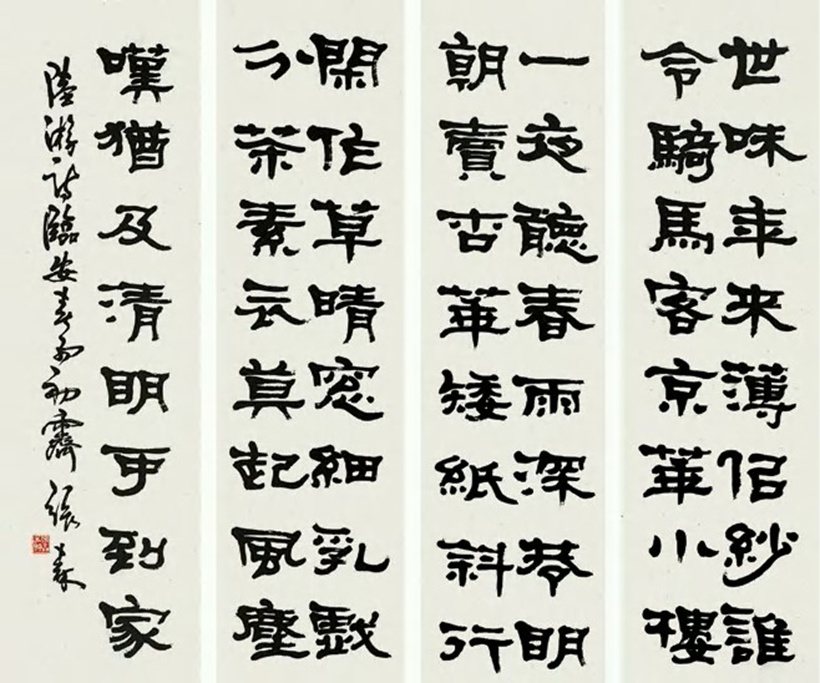 世味年来薄佀紗誰
令騎馬客京華小樓
一夜聽春雨深巷明
朝賣杏華矮紙斜行
閑作草晴窓細乳戲
分茶素衣莫起風塵
嘆猶及清明可到家
陸游詩臨安春雨初霽 張森